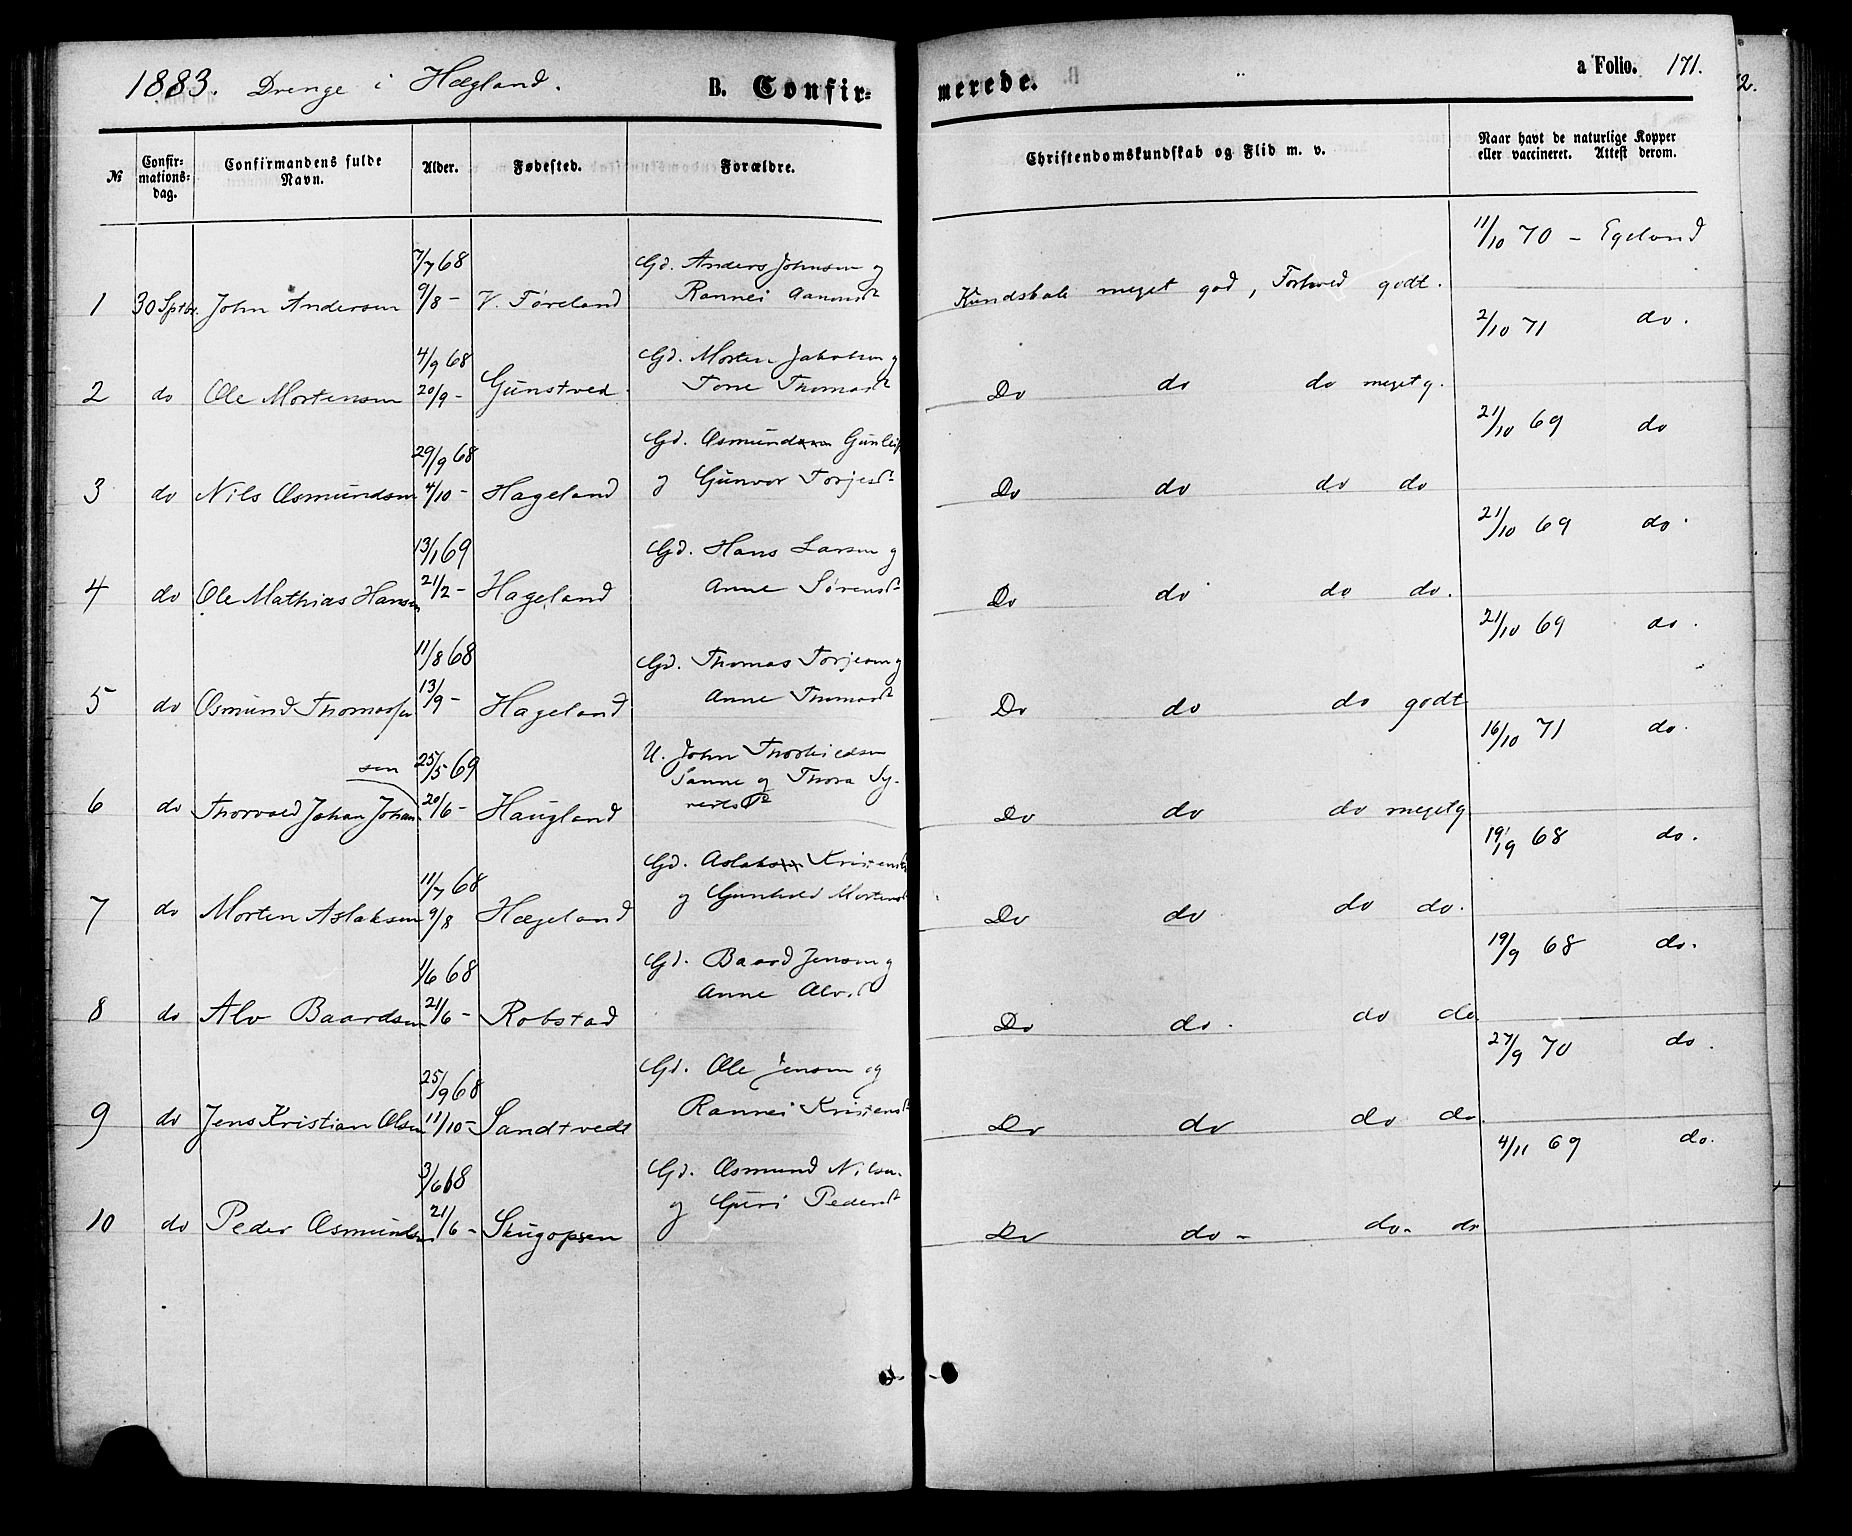 1883. Drenge i Hægland. B. Confir-
merede. a Folio. 171.
№ Confir-mations-dag. Confirmandens fulde Navn. Alder. Fødested. Forældre. Christendomskundskab og Flid m. v. Naar havt de naturlige Kopper eller vaccineret. Attest derom.
7/7 68 Gd. Anders Johnsen og 11/10 70 – Egeland
1 30 Sptbr. John Andersen 9/8 – V. Føreland Rannei Kundskab meget god, Forhold godt.
4/9 68 Gd. Morten Jakobsen og 2/10 71 do.
2 do Ole Mortensen 20/9 – Gunstved Tone Thomasd Do do do meget g.
29/9 68 Gd. Osmund Gunleifs 21/10 69 do
3 do Nils Osmundsen 4/10 – Hageland og Gunvor Torjesd Do do do do
13/1 69 Gd. Hans Larsen og 21/10 69 do.
4 do Ole Mathias Hansen 21/2 – Hageland Anne Sørensd Do do do do.
11/8 68 Gd. Thomas Torjesen og 21/10 69 do.
5 do Osmund Thomassen 13/9 – Hageland Anne Thomasd Do do do godt
sen 25/5 69 U. John Thorkildsen 16/10 71 do.
Sanne og Thora Sy-
6 do Thorvald Johan Johan 20/6 – Haugland vertsd Do do do meget g
11/7 68 Gd. Aslak Kristensen 19/9 68 do.
7 do Morten Aslaksen 9/8 Hægeland og Gunhild Mortensd Do do do do.
1/6 68 Gd. Baard Jensen og 19/9 68 do.
8 do Alv Baardsen 21/6 – Robstad Anne Alvsd Do do. do do.
25/9 68 Gd. Ole Jensen og 27/9 70 do.
9 do Jens Kristian Olsen 11/10 – Sandtvedt Rannei Kristensd Do do do do.
3/6 68 Gd. Osmund Nilsen 4/11 69 do.
10 do Peder Osmundsen 21/6 – Skugopsen og Guri Pedersd Do do – do – do